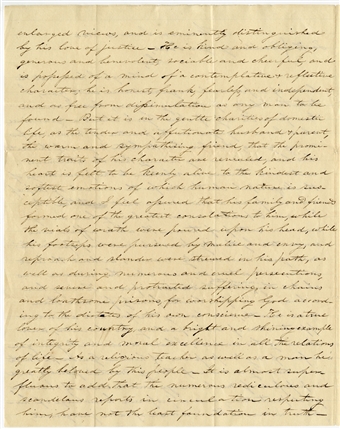 enlarged views, and is eminently distinguished
by his love of justice – He is kind and obliging,
generous and benevolent, sociable and cheerful, and
is possessed of a mind of a contemplative & reflective
character; he is honest, frank, fearless and independent,
and as free from dissimulation as any man to be
found – But it is in the gentle charities of domestic
life, as the tender and affectionate husband & parent,
the warm and sympathising friend, that the promi-
nent traits of his character are revealed, and his
heart is felt to be keenly alive to the kindest and
softest emotions of which human nature is sus-
ceptible, and I feel assured that his family and friends
formed one of the greatest consolations to him, while
the vials of wrath were poured upon his head, while
his footsteps were pursued by malice and envy, and
reproach and slander were strewed in his path, as
well as during numerous and cruel persecutions,
and severe and protracted sufferings, in chains
and loathsome prisons, for worshipping God accord-
ing to the dictates of his own conscience – He is a true
lover of his country, and a bright and shining example
of integrity and moral excellence in all the relations
of life – As a religious teacher as well as a man he is
greatly beloved by this people – It is almost super-
fluous to add, that the numerous rediculous and
scandalous reports in circulation respecting
him, have not the least foundation in truth –